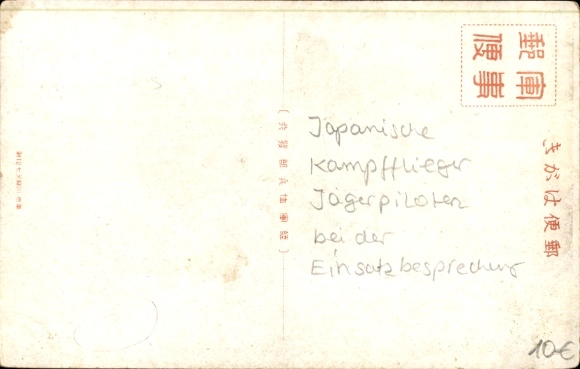 軍事
郵便
きがは便郵
Japanische
Kampfflieger
Jägerpiloten
bei der
Einsatzbesprechung
10€